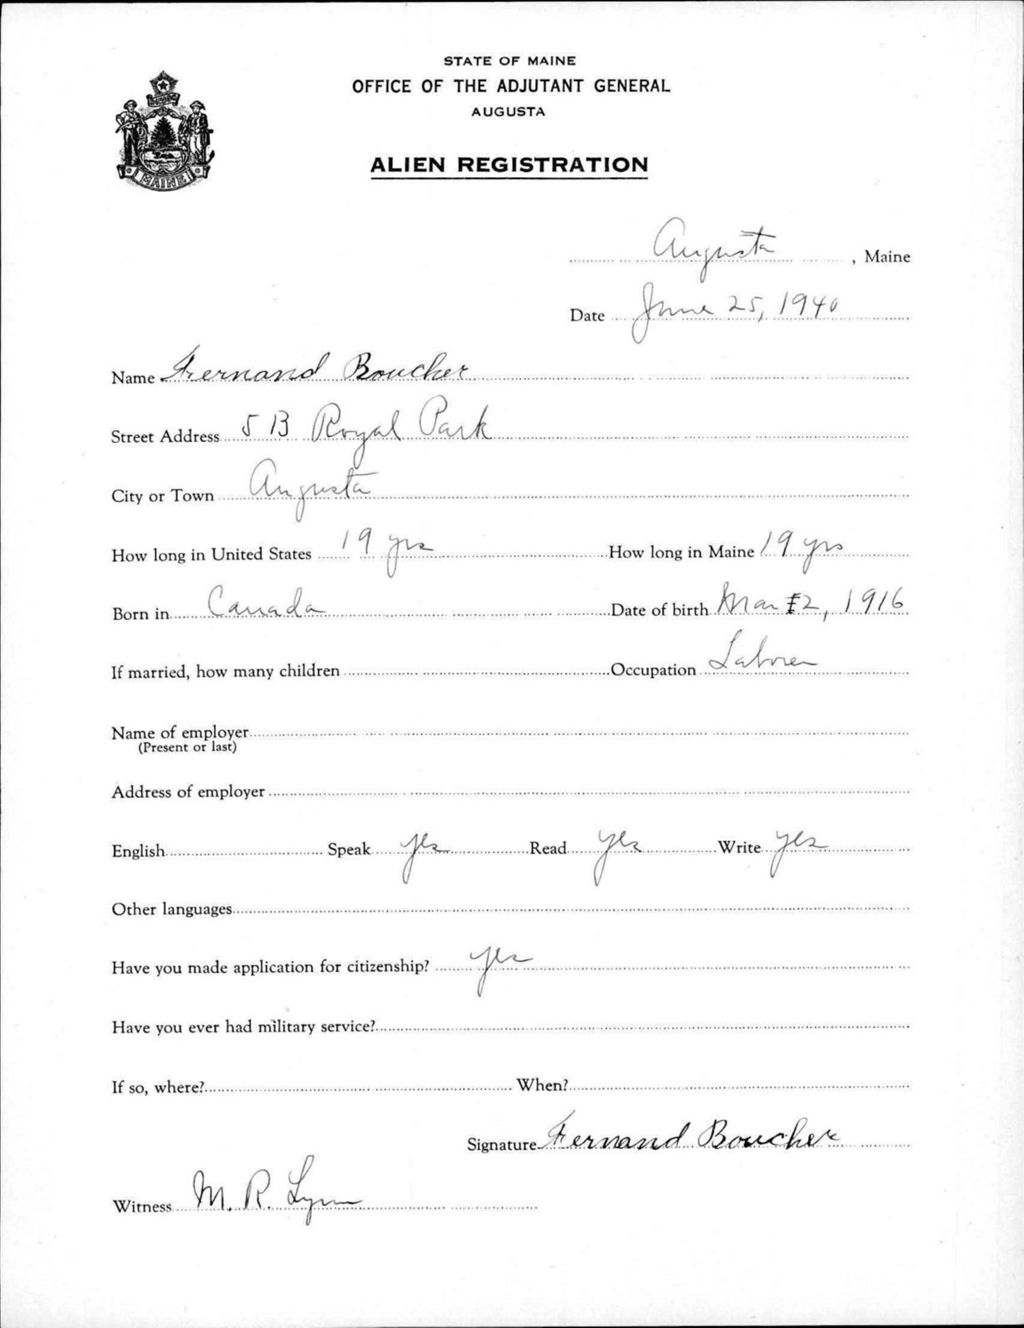 STATE OF MAINE
OFFICE OF THE ADJUTANT GENERAL
AUGUSTA
ALIEN REGISTRATION
MAINE
Augusta, Maine
Date June 25, 1940
Name Fernand Boucher
Street Address 5 B Royal Park
City or Town Augusta
How long in United States 19 yrs How long in Maine 19 yrs
Born in Canada Date of birth Mar 12, 1916
If married, how many children Occupation Laborer
Name of employer
(Present or last)
Address of employer
English Speak yes Read yes Write yes
Other languages
Have you made application for citizenship? yes
Have you ever had military service?
If so, where? When?
Signature Fernand Boucher
Witness M. R. Lynn